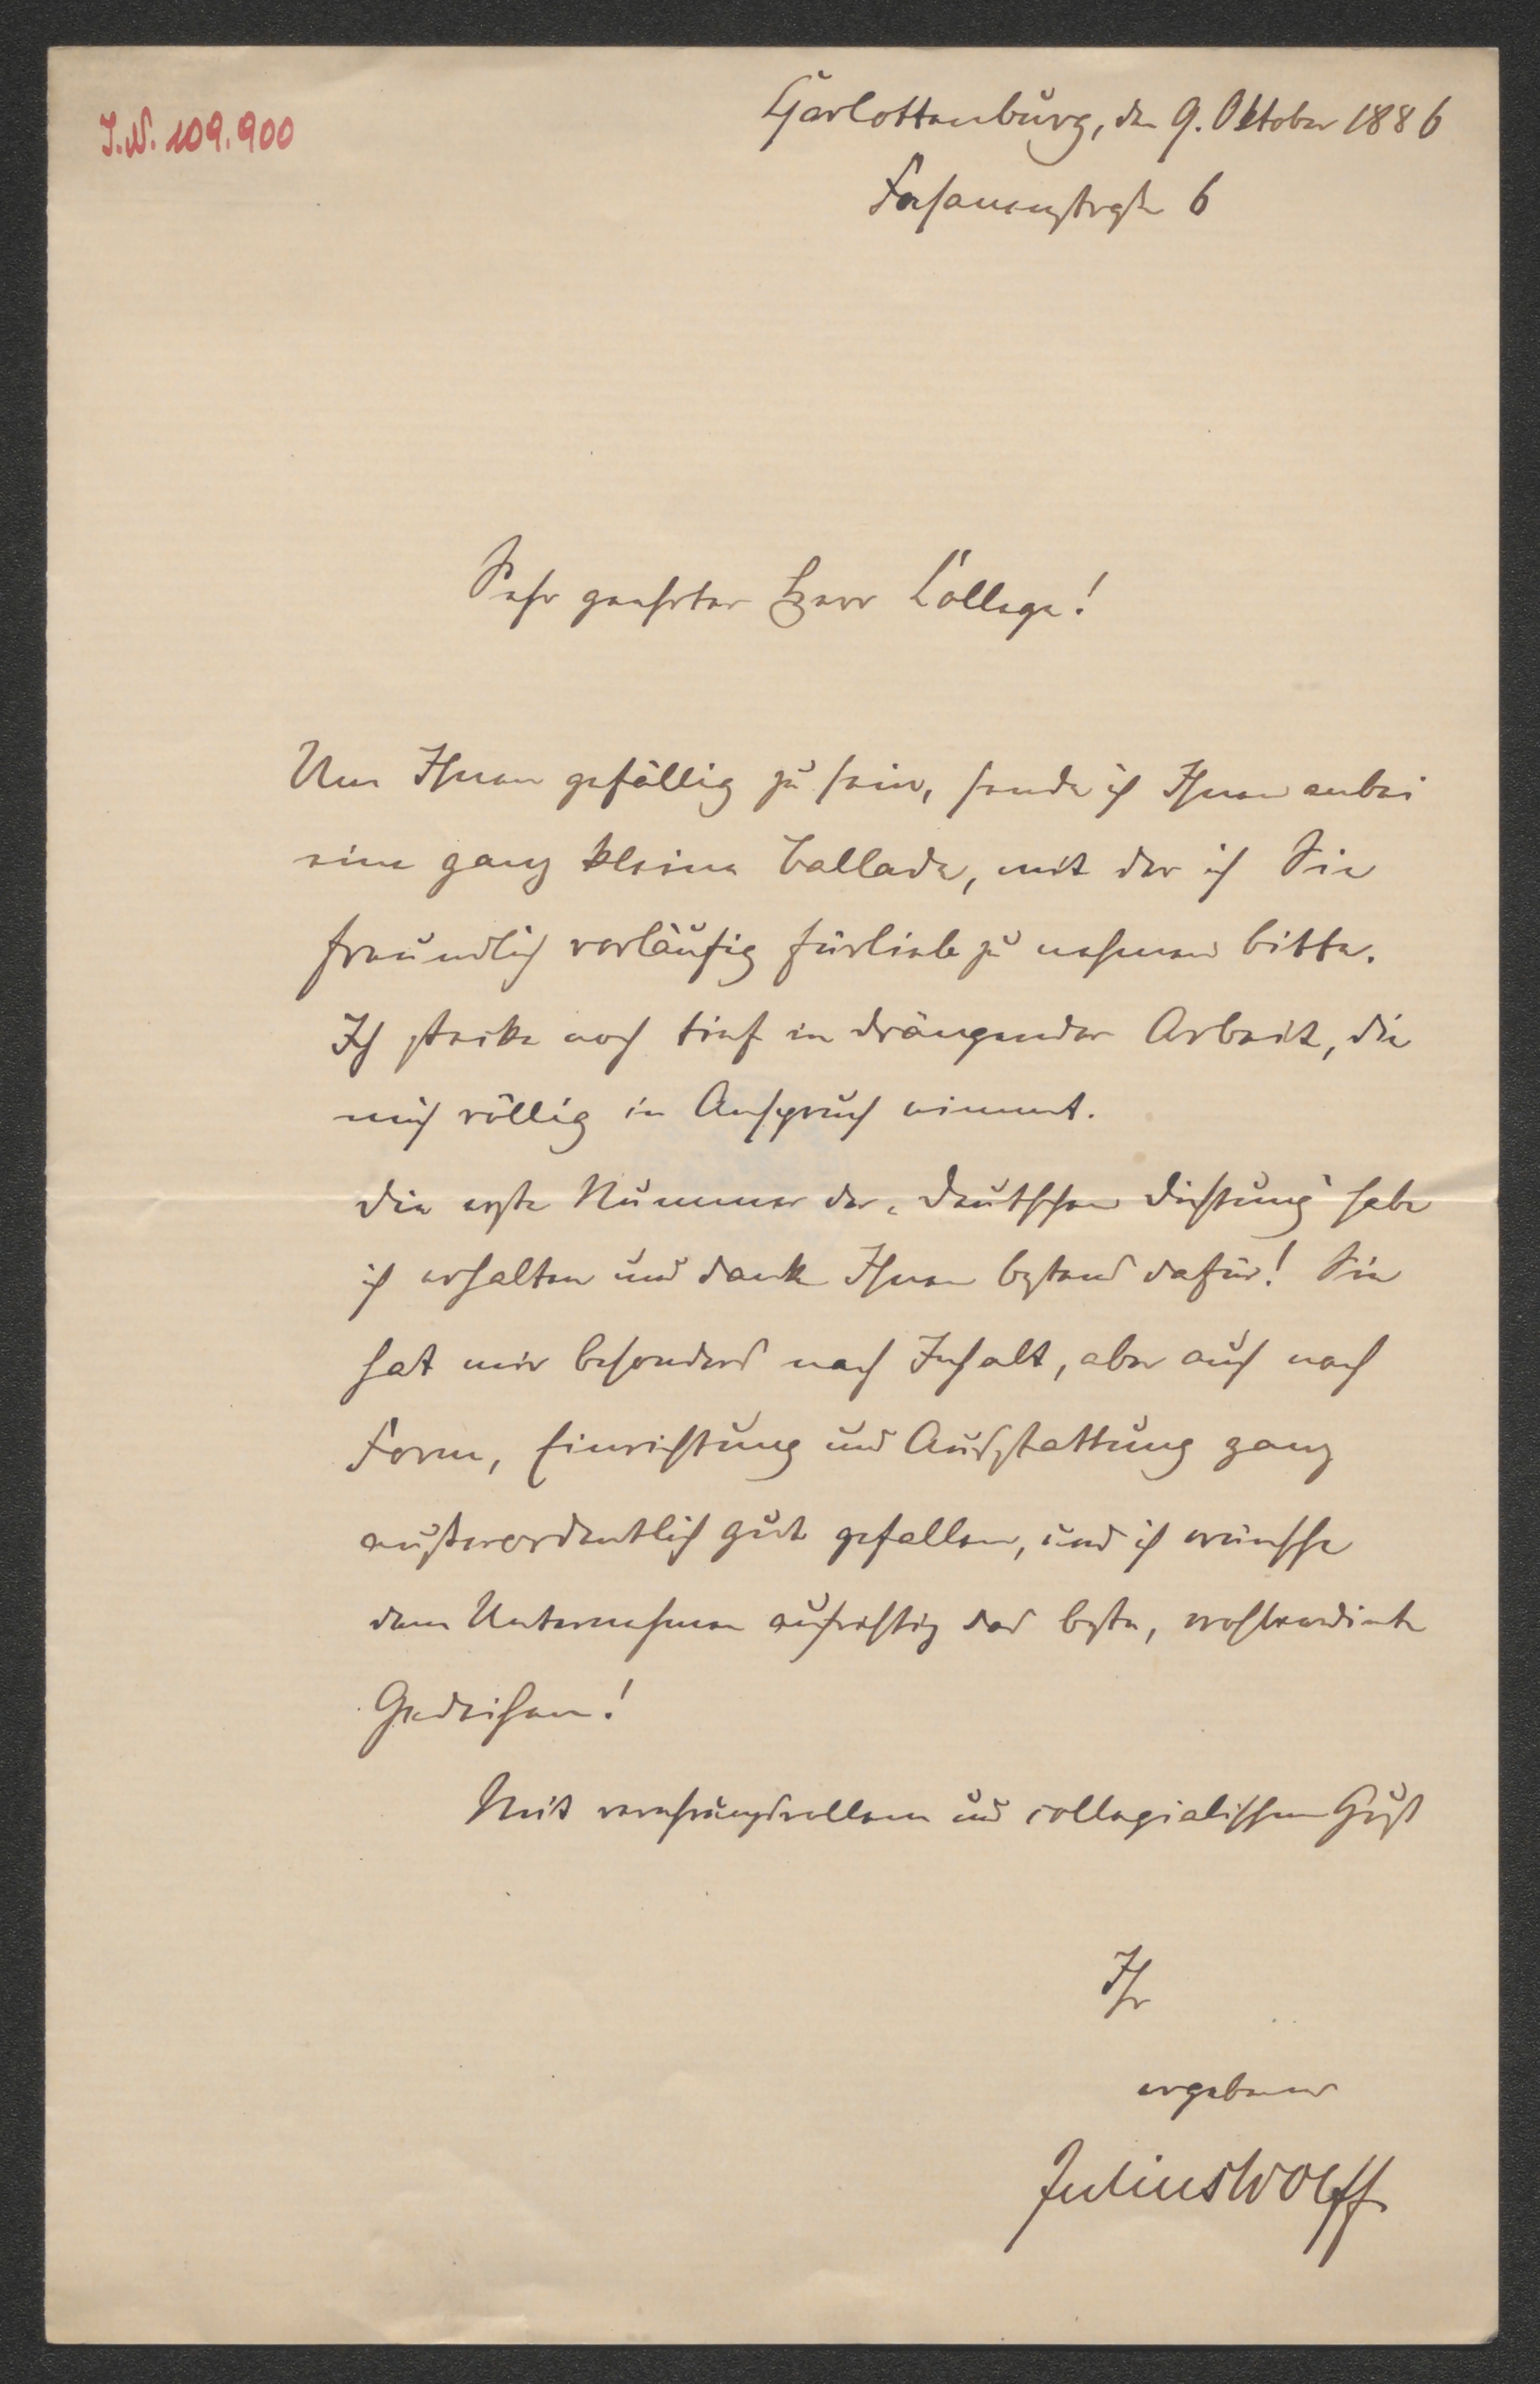 J.N. 109.900
Charlottenburg, den 9. Oktober 1886
Fasanenstraße 6
Sehr geehrter Herr College!
Um Ihnen gefällig zu sein, sende ich Ihnen anbei
eine ganz kleine Ballade, mit der ich Sie
freundlich vorläufig fürlieb zu nehmen bitte.
Ich stecke noch tief in drängender Arbeit, die
mich völlig in Anspruch nimmt.
Die erste Nummer der „Deutschen Dichtung" habe
ich erhalten und danke Ihnen bestens dafür! Sie
hat mir besonders nach Inhalt, aber auch nach
Form, Einrichtung und Ausstattung ganz
außerordentlich gut gefallen, und ich wünsche
dem Unternehmen aufrichtig das beste, wohlverdiente
Gedeihen!
Mit verehrungsvollem und collegialischem Gruß
Ihr
ergebener
Julius Wolff